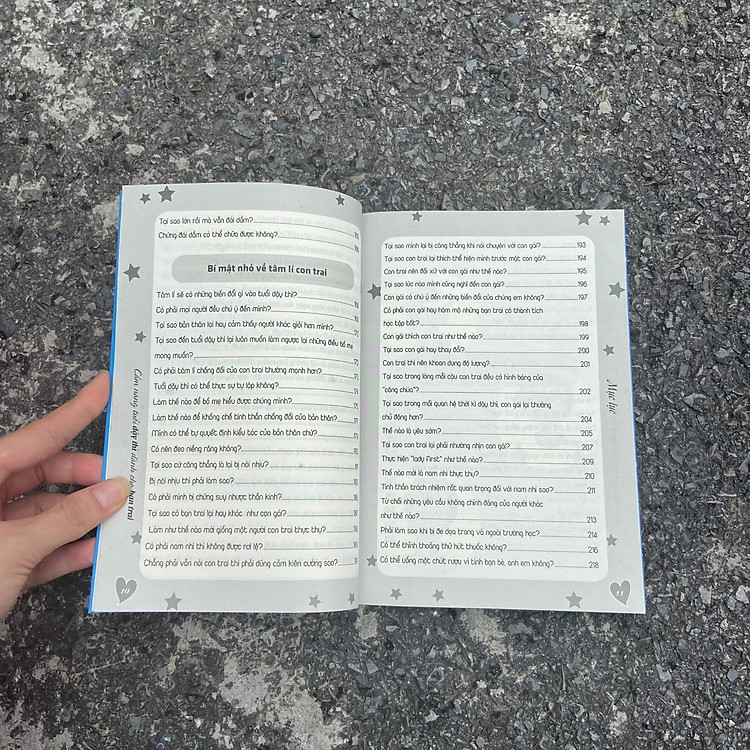 Tại sao lớn rồi mà vẫn đái dầm?
Chứng đái dầm có thể chữa được không?
Bí mật nhỏ về tâm lí con trai
Tâm lí sẽ có những biến đổi gì vào tuổi dậy thì?
Có phải mọi người đều chú ý đến mình?
Tại sao bản thân lại hay cảm thấy người khác giỏi hơn mình?
Tại sao đến tuổi dậy thì lại luôn muốn làm ngược lại những điều bố mẹ
mong muốn?
Có phải tâm lí chống đối của con trai thường mạnh hơn?
Tuổi dậy thì có thể thực sự tự lập không?
Làm thế nào để bố mẹ hiểu được chúng mình?
Làm thế nào để khống chế tinh thần chống đối của bản thân?
Mình có thể tự quyết định kiểu tóc của bản thân chứ?
Có nên đeo niềng răng không?
Tại sao cứ căng thẳng là lại bị nói nhịu?
Bị nói nhịu thì phải làm sao?
Có phải mình bị chứng suy nhược thần kinh?
Tại sao có bạn trai lại hay khóc như con gái?
Làm như thế nào mới giống một người con trai thực thụ?
Có phải nam nhi thì không được rơi lệ?
Chẳng phải vẫn nói con trai thì phải dũng cảm kiên cường sao?
Cẩm nang tuổi dậy thì dành cho bạn trai
10
Tại sao mình lại bị căng thẳng khi nói chuyện với con gái? 193
Tại sao con trai lại thích thể hiện mình trước mặt con gái? 194
Con trai nên đối xử với con gái như thế nào? 195
Tại sao lúc nào mình cũng nghĩ đến con gái? 196
Con gái có chú ý đến những biến đổi của chúng em không? 197
Có phải con gái hay hâm mộ những bạn trai có thành tích
học tập tốt? 198
Con gái thích con trai như thế nào? 199
Tại sao con gái hay thay đổi? 200
Con trai thì nên khoan dung độ lượng? 201
Tại sao trong lòng mỗi cậu con trai đều có hình bóng của
"công chúa"? 202
Tại sao trong mối quan hệ thời kì dậy thì, con gái lại thường
chủ động hơn? 204
Thế nào là yêu sớm? 205
Tại sao con trai lại phải nhường nhịn con gái? 207
Thực hiện "lady First" như thế nào? 209
Thế nào mới là nam nhi thực thụ? 210
Tinh thần trách nhiệm rất quan trọng đối với nam nhi sao? 211
Từ chối những yêu cầu không chính đáng của người khác
như thế nào? 213
Phải làm sao khi bị đe dọa trong và ngoài trường học? 214
Có thể thỉnh thoảng thử hút thuốc không? 216
Có thể uống một chút rượu vì tình bạn bè, anh em không? 218
Mục lục
11